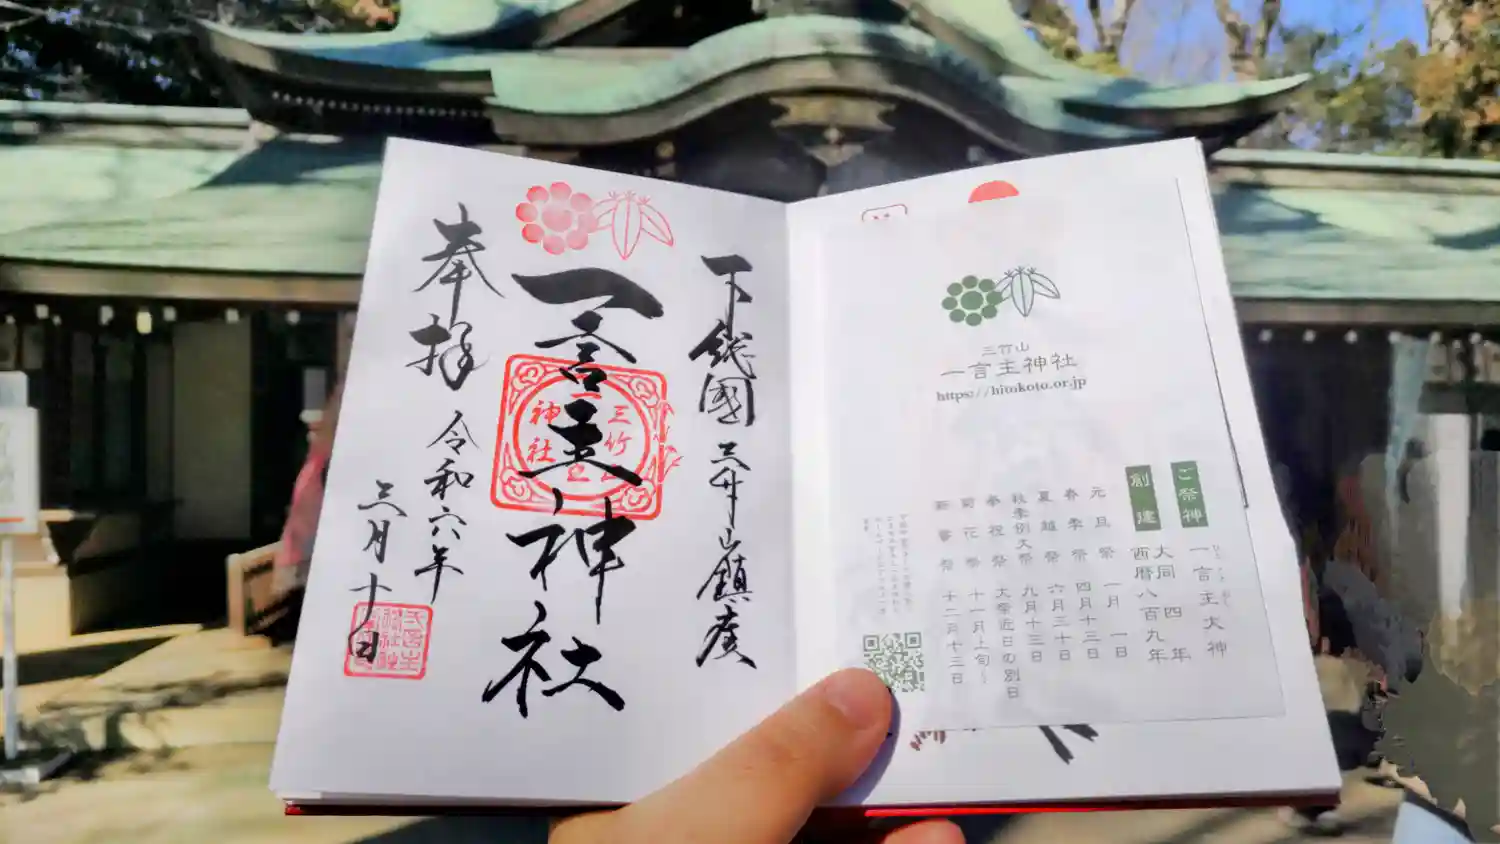 下総國三竹山鎮座
一言主神社
三竹山
神社
奉拝
令和六年
三月十日
三竹山
一言主神社
https://hitokoto.or.jp
ご祭神
一言主大神
創建
大同四年
西暦八百九年
元旦祭 一月一日
春季祭 四月十三日
夏越祭 六月三十日
秋季例大祭 九月十三日
奉祝祭 大祭近日の別日
菊花祭 十一月上旬〜
新嘗祭 十二月十三日